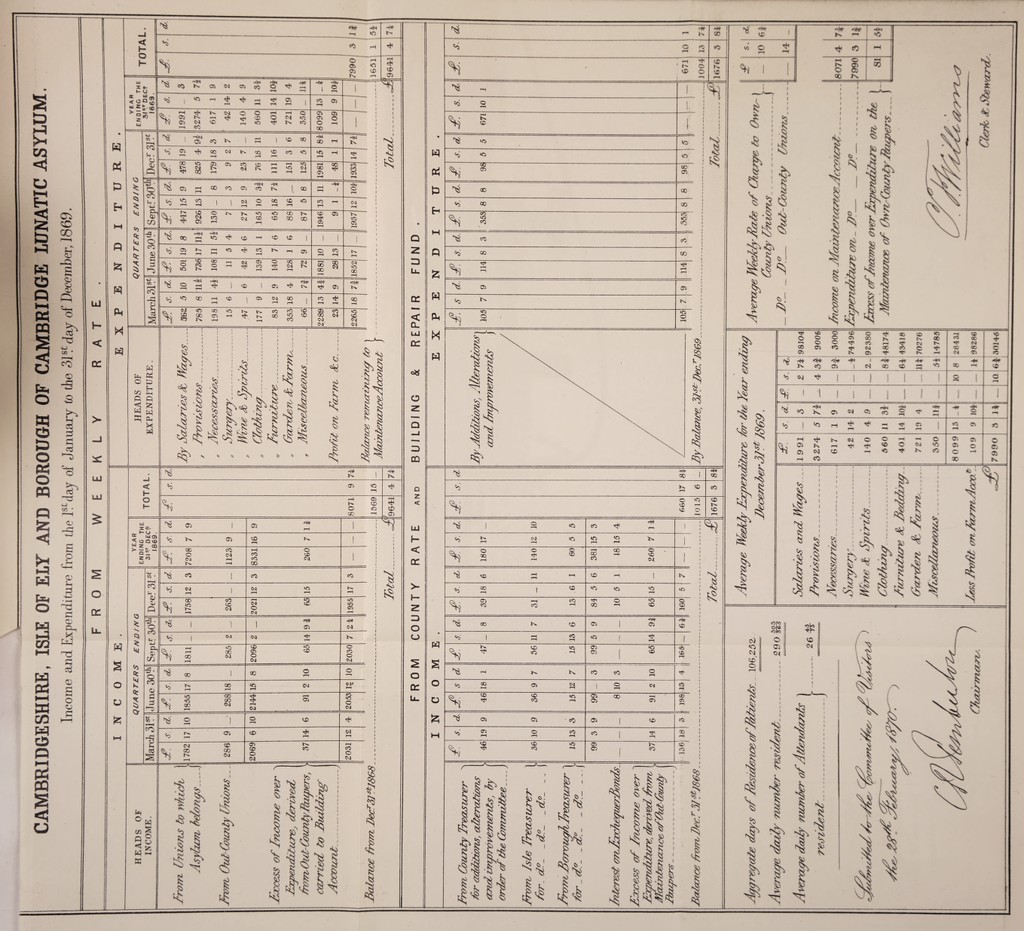 CAMBRIDGESHIRE, ISLE OF ELY AND BOROUGH OF CAMBRIDGE LUNATIC ASYLUM.
Income and Expenditure from the 1st day of January to the 31st day of December, 1869.
FROM WEEKLY RATE.
INCOME.
HEADS OF INCOME.
QUARTERS ENDING
March 31st June 30th Sept. 30th Decr. 31st
YEAR ENDING THE 31ST DECR 1869.
TOTAL.
£. s. d. £. s. d. £. s. d. £. s. d. £. s. d. £. s. d.
From Unions to which Asylum belongs 1782 17 10 1855 17 8 1811 - - 1758 12 3 7208 7 9
From Out-County Unions 286 9 - 288 18 - 285 2 - 263 - - 1123 9 -
2069 6 10 2144 15 8 2096 2 - 2021 12 3 8331 16 9
Excess of Income over
Expenditure, derived
from Out-County Paupers,
carried to Building
Account 37 14 6 91 2 10 65 14 9¾ 65 15 260 7 1¾
2031 12 4 2053 12 10 2030 7 2¼ 1955 17 3 - - - 8071 9 7¼
Balance from Decr. 31st 1868 1569 15 -
Total £9641 4 7¼
EXPENDITURE.
HEADS OF EXPENDITURE.
QUARTERS ENDING
March 31st June 30th Septr. 30th Decr. 31st
YEAR ENDING THE 31ST DECR 1869.
TOTAL.
£. s. d. £. s. d. £. s. d. £. s. d. £. s. d. £. s. d.
By Salaries & Wages 562 5 10 501 19 8 447 15 9 478 19 - 1991 - 3
" Provisions 785 8 11¼ 736 17 11¼ 926 13 11 825 4 9¼ 3274 5 7¼
" Necessaries 198 11 4¼ 108 11 5¼ 130 - 8 179 18 3 617 1 9
" Surgery 15 6 - 11 5 4 7 - 3 9 2 7 42 14 2
" Wine & Spirits 47 - 6 42 4 6 27 12 9 23 7 - 140 4 9
" Clothing 177 9 - 139 13 1 165 10 3¼ 76 18 11 560 11 3¼
" Furniture 83 12 9 140 7 6 65 18 7¼ 111 16 - 401 14 10¼
" Garden & Farm 353 18 4 128 1 6 88 16 - 151 3 6 721 19 4
" Miscellaneous 66 - 7¼ 72 9 - 87 5 8 125 5 8 350 - 11¼
2289 13 4¼ 1881 10 - 1946 13 11 1981 15 8¼ 8099 13 -¼
Profit on Farm. &c. 23 14 9 28 13 - 9 1 -¼ 48 1 1 109 9 10¾
2265 18 7¼ 1852 17 - 1937 12 10¾ 1933 14 7¼ - - - 7990 3 1¾
Balance remaining to Maintenance Account 1651 1 5¼
Total £9641 4 7¼
FROM COUNTY RATE AND BUILDING & REPAIR FUND.
INCOME.
£ s. d. £ s. d. £. s. d. £. s. d. £. s. d. £. s. d.
From County Treasurer
for additions, alterations
and improvements, by
order of the Committee 46 19 9 46 18 1 47 - 8 39 18 6 180 17 -
From Isle Treasurer
for do. do. 36 10 9 36 9 7 36 11 7 31 - 11 140 12 10
From Borough Treasurer
for do. do. 15 13 3 15 12 7 15 13 6 13 6 1 60 5 5
99 3 9 99 - 3 99 5 9 84 5 6 381 15 3
Interest on Exchequer Bonds - - - 8 10 3 - - - 10 5 1 18 15 4
Excess of Income over
Expenditure, derived from
Maintenance of Out-County
Paupers 37 14 6 91 2 10 65 14 9¾ 65 15 - 260 7 1¾
136 18 3 198 13 4 165 - 6¾ 160 5 7 - - - 660 17 8¾
Balance from Decr. 31st 1868 1015 6 -
Total £ 1676 3 8¾
EXPENDITURE.
£. s. d. £. s. d. £. s. d. £. s. d. £. s. d. £. s. d.
By Additions, Alterations
and Improvements 105 7 9 114 8 3 353 8 8 98 5 5 671 10 1
105 7 9 114 8 3 353 8 8 98 5 5 - - - 671 10 1
By Balance, 31st Decr. 1869 1004 13 7¾
Total £ 1676 3 8¾
Aggregate days of Residence of Patients 106,252.
Average daily number resident 290
Average daily number of Attendants
resident 26
Submitted to the Committee of Visitors
the 25th February, 1870.
Chairman.
Average Weekly Expenditure for the Year ending
December 31st 1869.
£. s. d. £. s. d.
Salaries and Wages 1991 - 3 - 2 7¼ 98104
Provisions 3274 5 7¼ - 4 3¼ 9006
Necessaries 617 1 9 - - 9¼ 3000
Surgery 42 14 2 - - -¼ 74496
Wine & Spirits 140 4 9 - - 2 92380
Clothing 560 11 3¼ - - 8¼ 48174
Furniture & Bedding 401 14 10¼ - - 6¼ 45418
Garden & Farm 721 19 4 - - 11¼ 70276
Miscellaneous 350 - 11¼ - - 5¼ 14785
8099 13 -¼ - 10 8 28431
Less Profit on Farm Acco.t 109 9 10¾ - - 1¼ 98286
£ 7990 3 1¾ - 10 6¼ 30145
£ s. d.
Average Weekly Rate of Charge to Own-County Unions - 10 6¼
Do. Do. Out-County Unions - 14 -
Income on Maintenance Account 8071 4 7¼
Expenditure on Do. Do. 7990 3 1¾
Excess of Income over Expenditure on the
Maintenance of Own-County Paupers 81 1 5¼
C. Williams
Clerk & Steward.